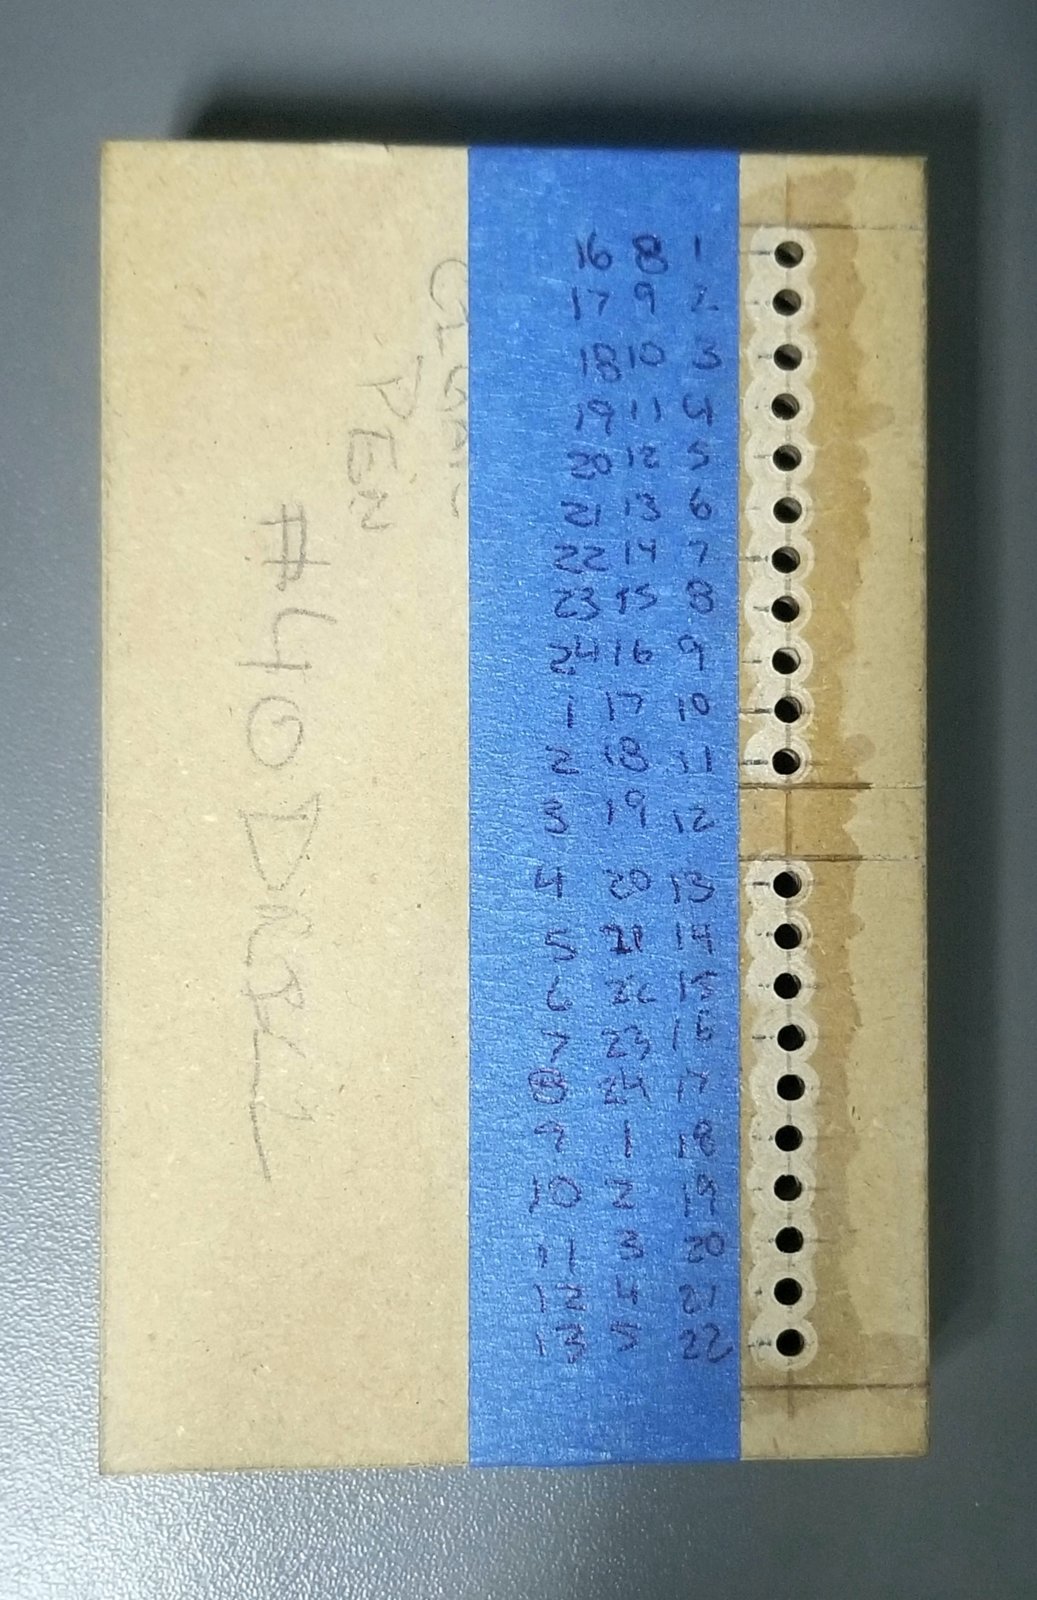 16 8 1
17 9 2
18 10 3
19 11 4
20 12 5
21 13 6
22 14 7
23 15 8
24 16 9
1 17 10
2 18 11
3 19 12
4 20 13
5 21 14
6 22 15
7 23 16
8 24 17
9 1 18
10 2 19
11 3 20
12 4 21
13 5 22
PEN
#40 DRILL